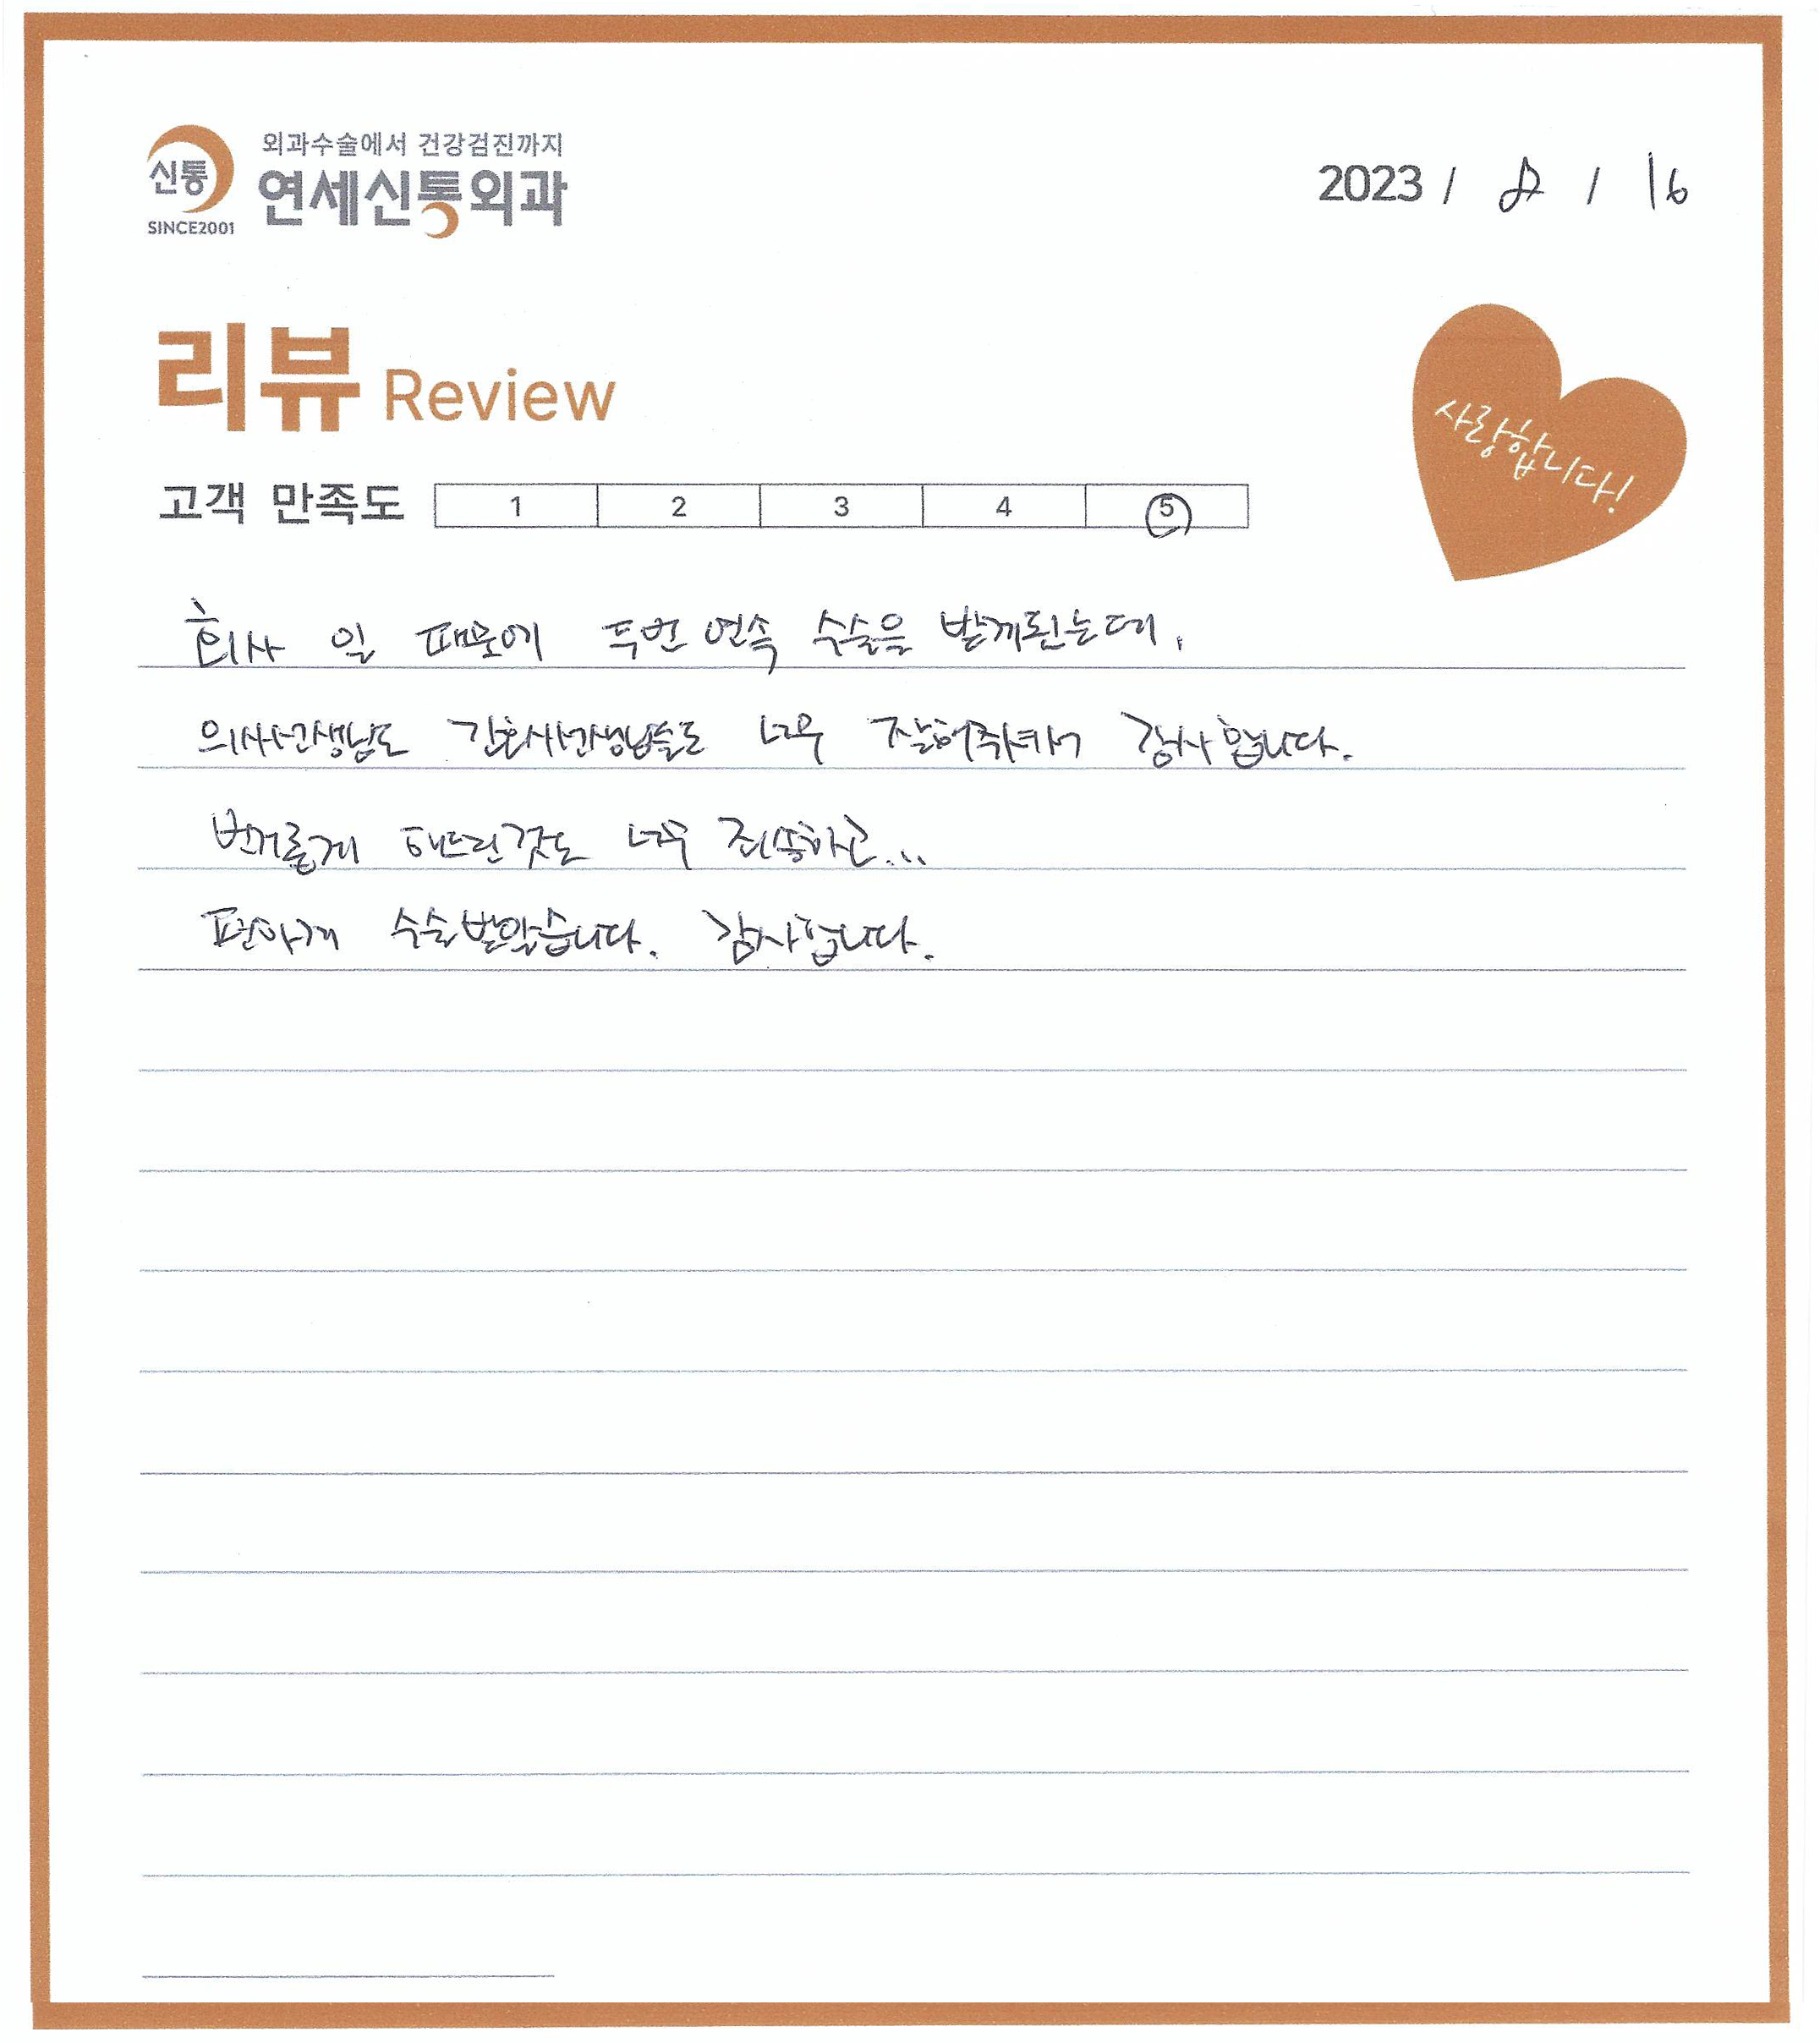 외과수술에서 건강검진까지
신통
연세신통외과
SINCE2001
2023 / 8 / 16
리뷰 Review
사랑합니다!
고객 만족도 1 2 3 4 5
회사 일 때문에 두번 연속 수술을 받게된는데,
의사선생님도 간호사선생님들도 너무 잘해주셔서 감사합니다.
번거롭게 해드린것도 너무 죄송하고...
편하게 수술받았습니다. 감사합니다.